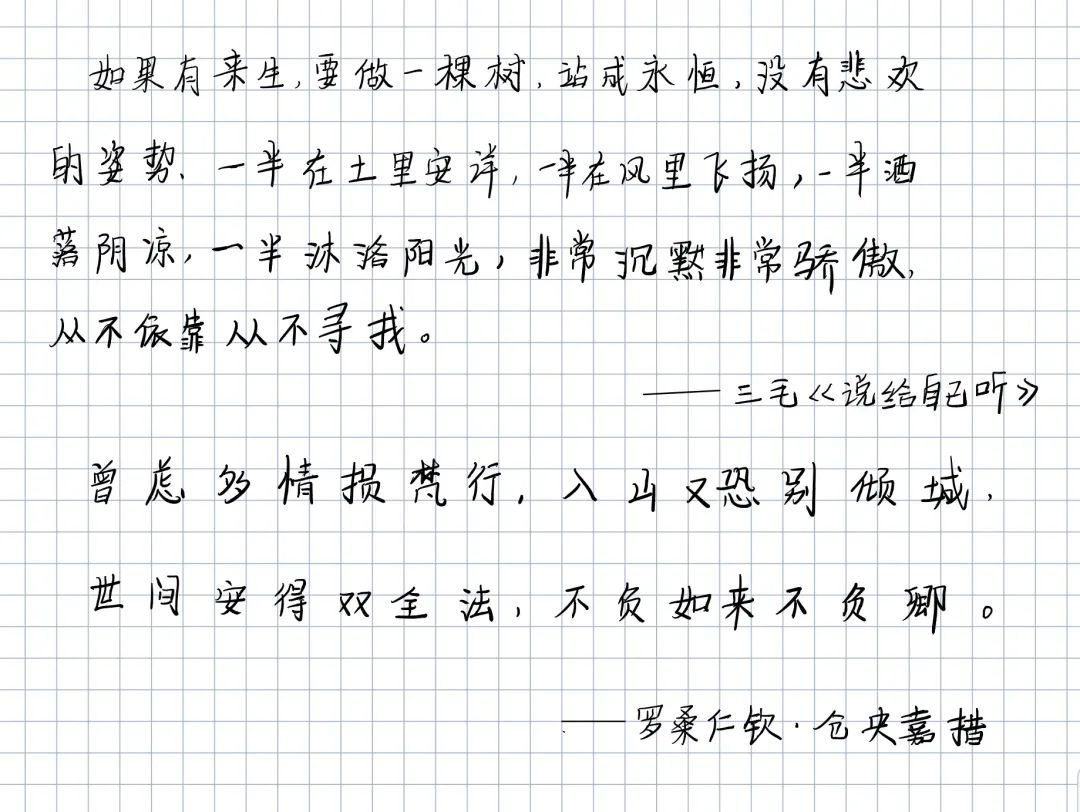 如果有来生,要做一棵树,站成永恒,没有悲欢
的姿势、一半在土里安详,一半在风里飞扬,一半洒
落阴凉,一半沐洛阳光,非常沉默非常骄傲,
从不依靠从不寻找。
——三毛《说给自己听》
曾虑多情损梵行,入山又恐别倾城,
世间安得双全法,不负如来不负卿。
——罗桑仁钦·仓央嘉措